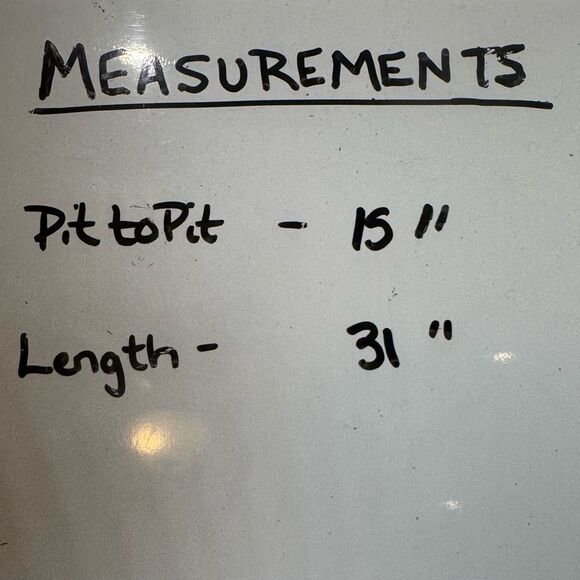 MEASUREMENTS
Pit to Pit - 15"
Length - 31"